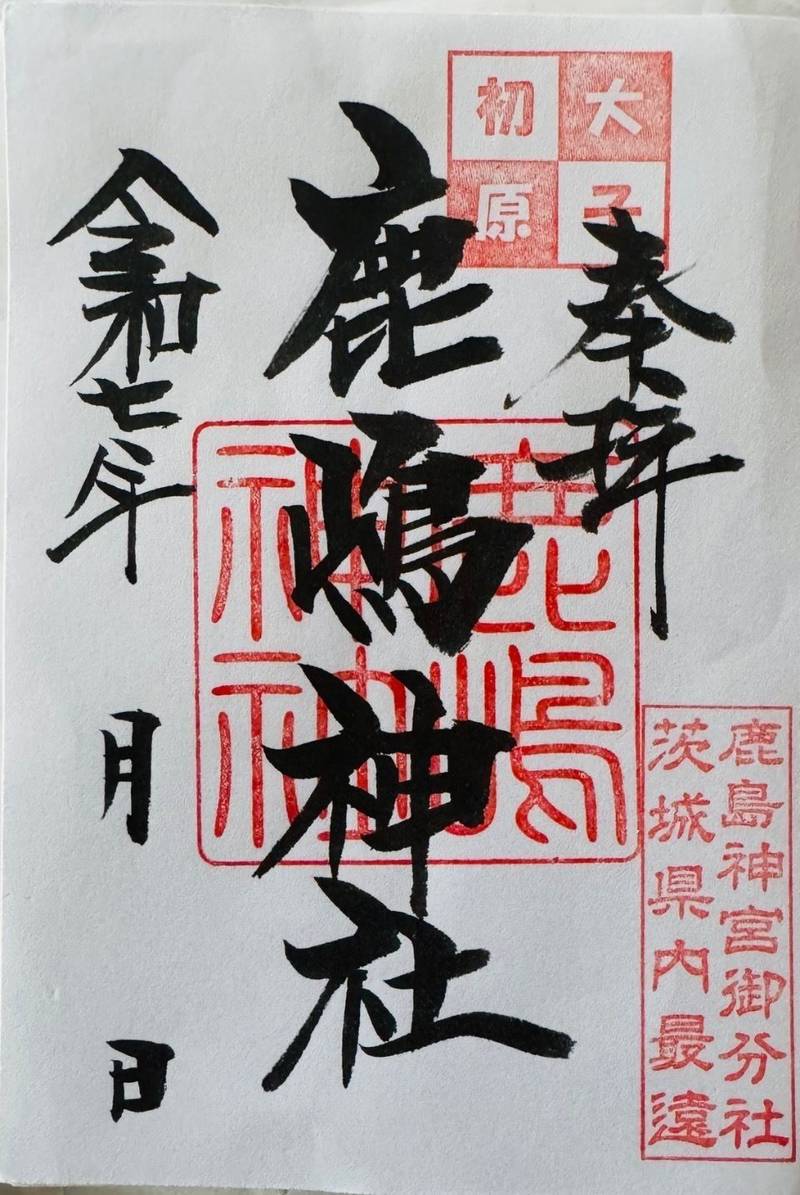 大子
初原
奉拝
鹿嶋神社
鹿嶋神社
令和七年 月 日
鹿島神宮御分社
茨城県内最遠